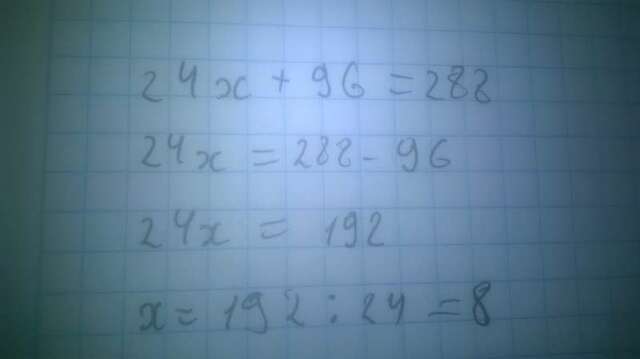 24x + 96 = 288
24x = 288 - 96
24x = 192
x = 192 : 24 = 8